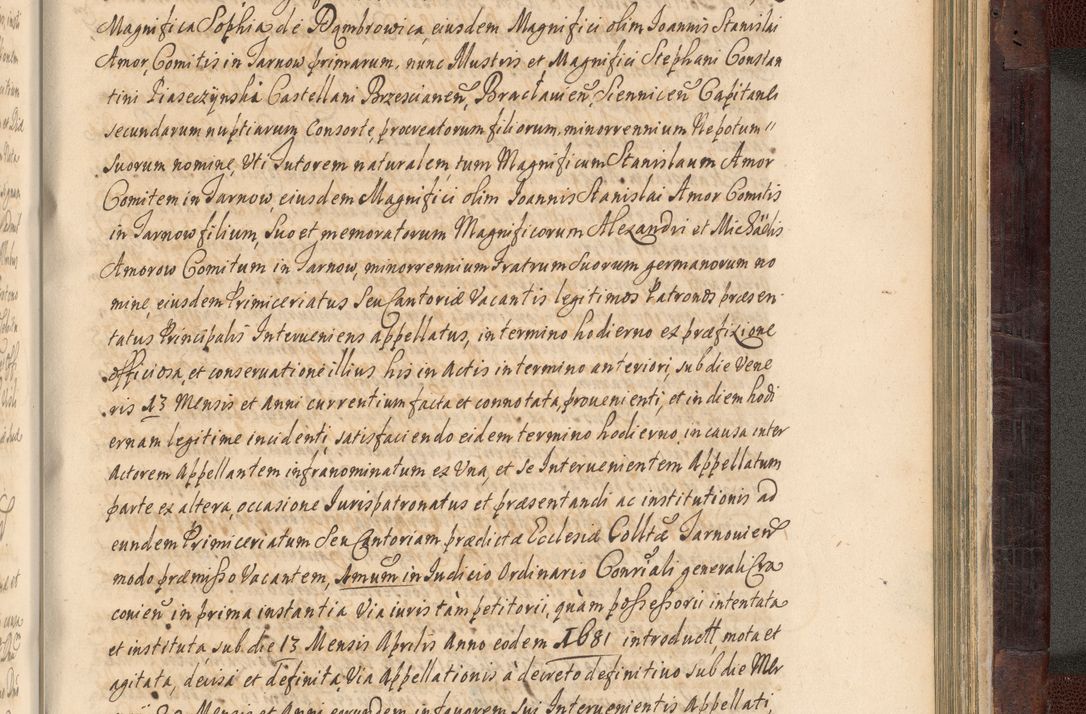 Magnifica Sophia de Dąmbrowica, eiusdem Magnifici olim Joannis Stanislai
Amor, Comitis in Tarnow primarum, nunc Illustris et Magnifici Stephani Constan
tini Piaseczynski Castellani Brzescianeñ, Bracłavieñ, Sienniceñ Capitanei
secundarum nuptiarum Consorte, procreatorum filiorum, minorrennium Nepotum //
suorum nomine, Uti Tutorem naturalem, tum Magnificum Stanislaum Amor
Comitem in Tarnow, eiusdem Magnifici olim Joannis Stanislai Amor Comitis
in Tarnow filium, Suo et memoratorum Magnificorum Alexandri et Michaelis
Amorow Comitum in Tarnow, minorrennium Fratrum Suorum germanorum no
mine, eiusdem Primiceriatus Seu Cantoriæ Vacantis legitimos Patronos præsen
tatus Principalis Interveniens appellatus, in termino hodierno ex præfixione
officiosa, et conservatione illius his in Actis in termino anteriori, sub die Vene
ris 13 Mensis et Anni currentium facta et connotata, provenienti, et in diem hodi
ernam legitime incidenti, satisfaciendo eidem termino hodierno, in causa inter
Actorem Appellantem infranominatum ex Una, et se Intervenientem Appellatum
parte ex altera, occasione Jurispatronatus et præsentandi ac institutionis ad
eundem Primiceriatum Seu Cantoriam prædictæ Ecclesiæ Colltæ Tarnovieñ
modo præmisso Vacantem, in Judicio Ordinario Conrsali generali Cra
covieñ in prima instantia Via iuris tam petitorii, quàm possessorii intentata
et instituta sub die 13 Mensis Aprilis Anno eodem 1681 introducta, mota et
agitata, decisa et definita, Via Appellationis à decreto definitivo sub die Mer
Mensis et Anni eorundem in favorem Sui Intervenientis Appellati,